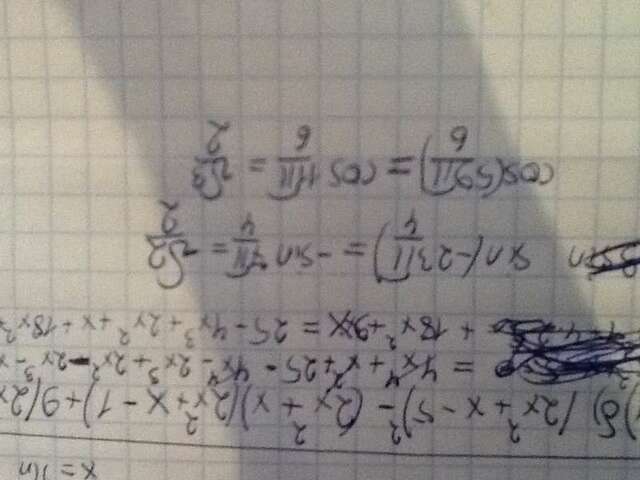 x =
)б) (2x² + x - 5)² - (2x² + x)(2x² + x - 1) + 9(2x
= 4x⁴ + x² + 25 - 4x⁴ - 2x³ + 2x² - 2x³ - x
+ 18x² + 9x = 25 - 4x³ + 2x² + x + 18x²
sin sin(-23π/4) = -sin 7π/4 = -√2/2
cos(59π/6) = cos 11π/6 = √3/2